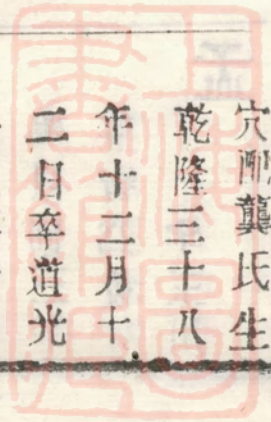 穴配龔氏生
乾隆三十八
年十二月十
二日卒道光